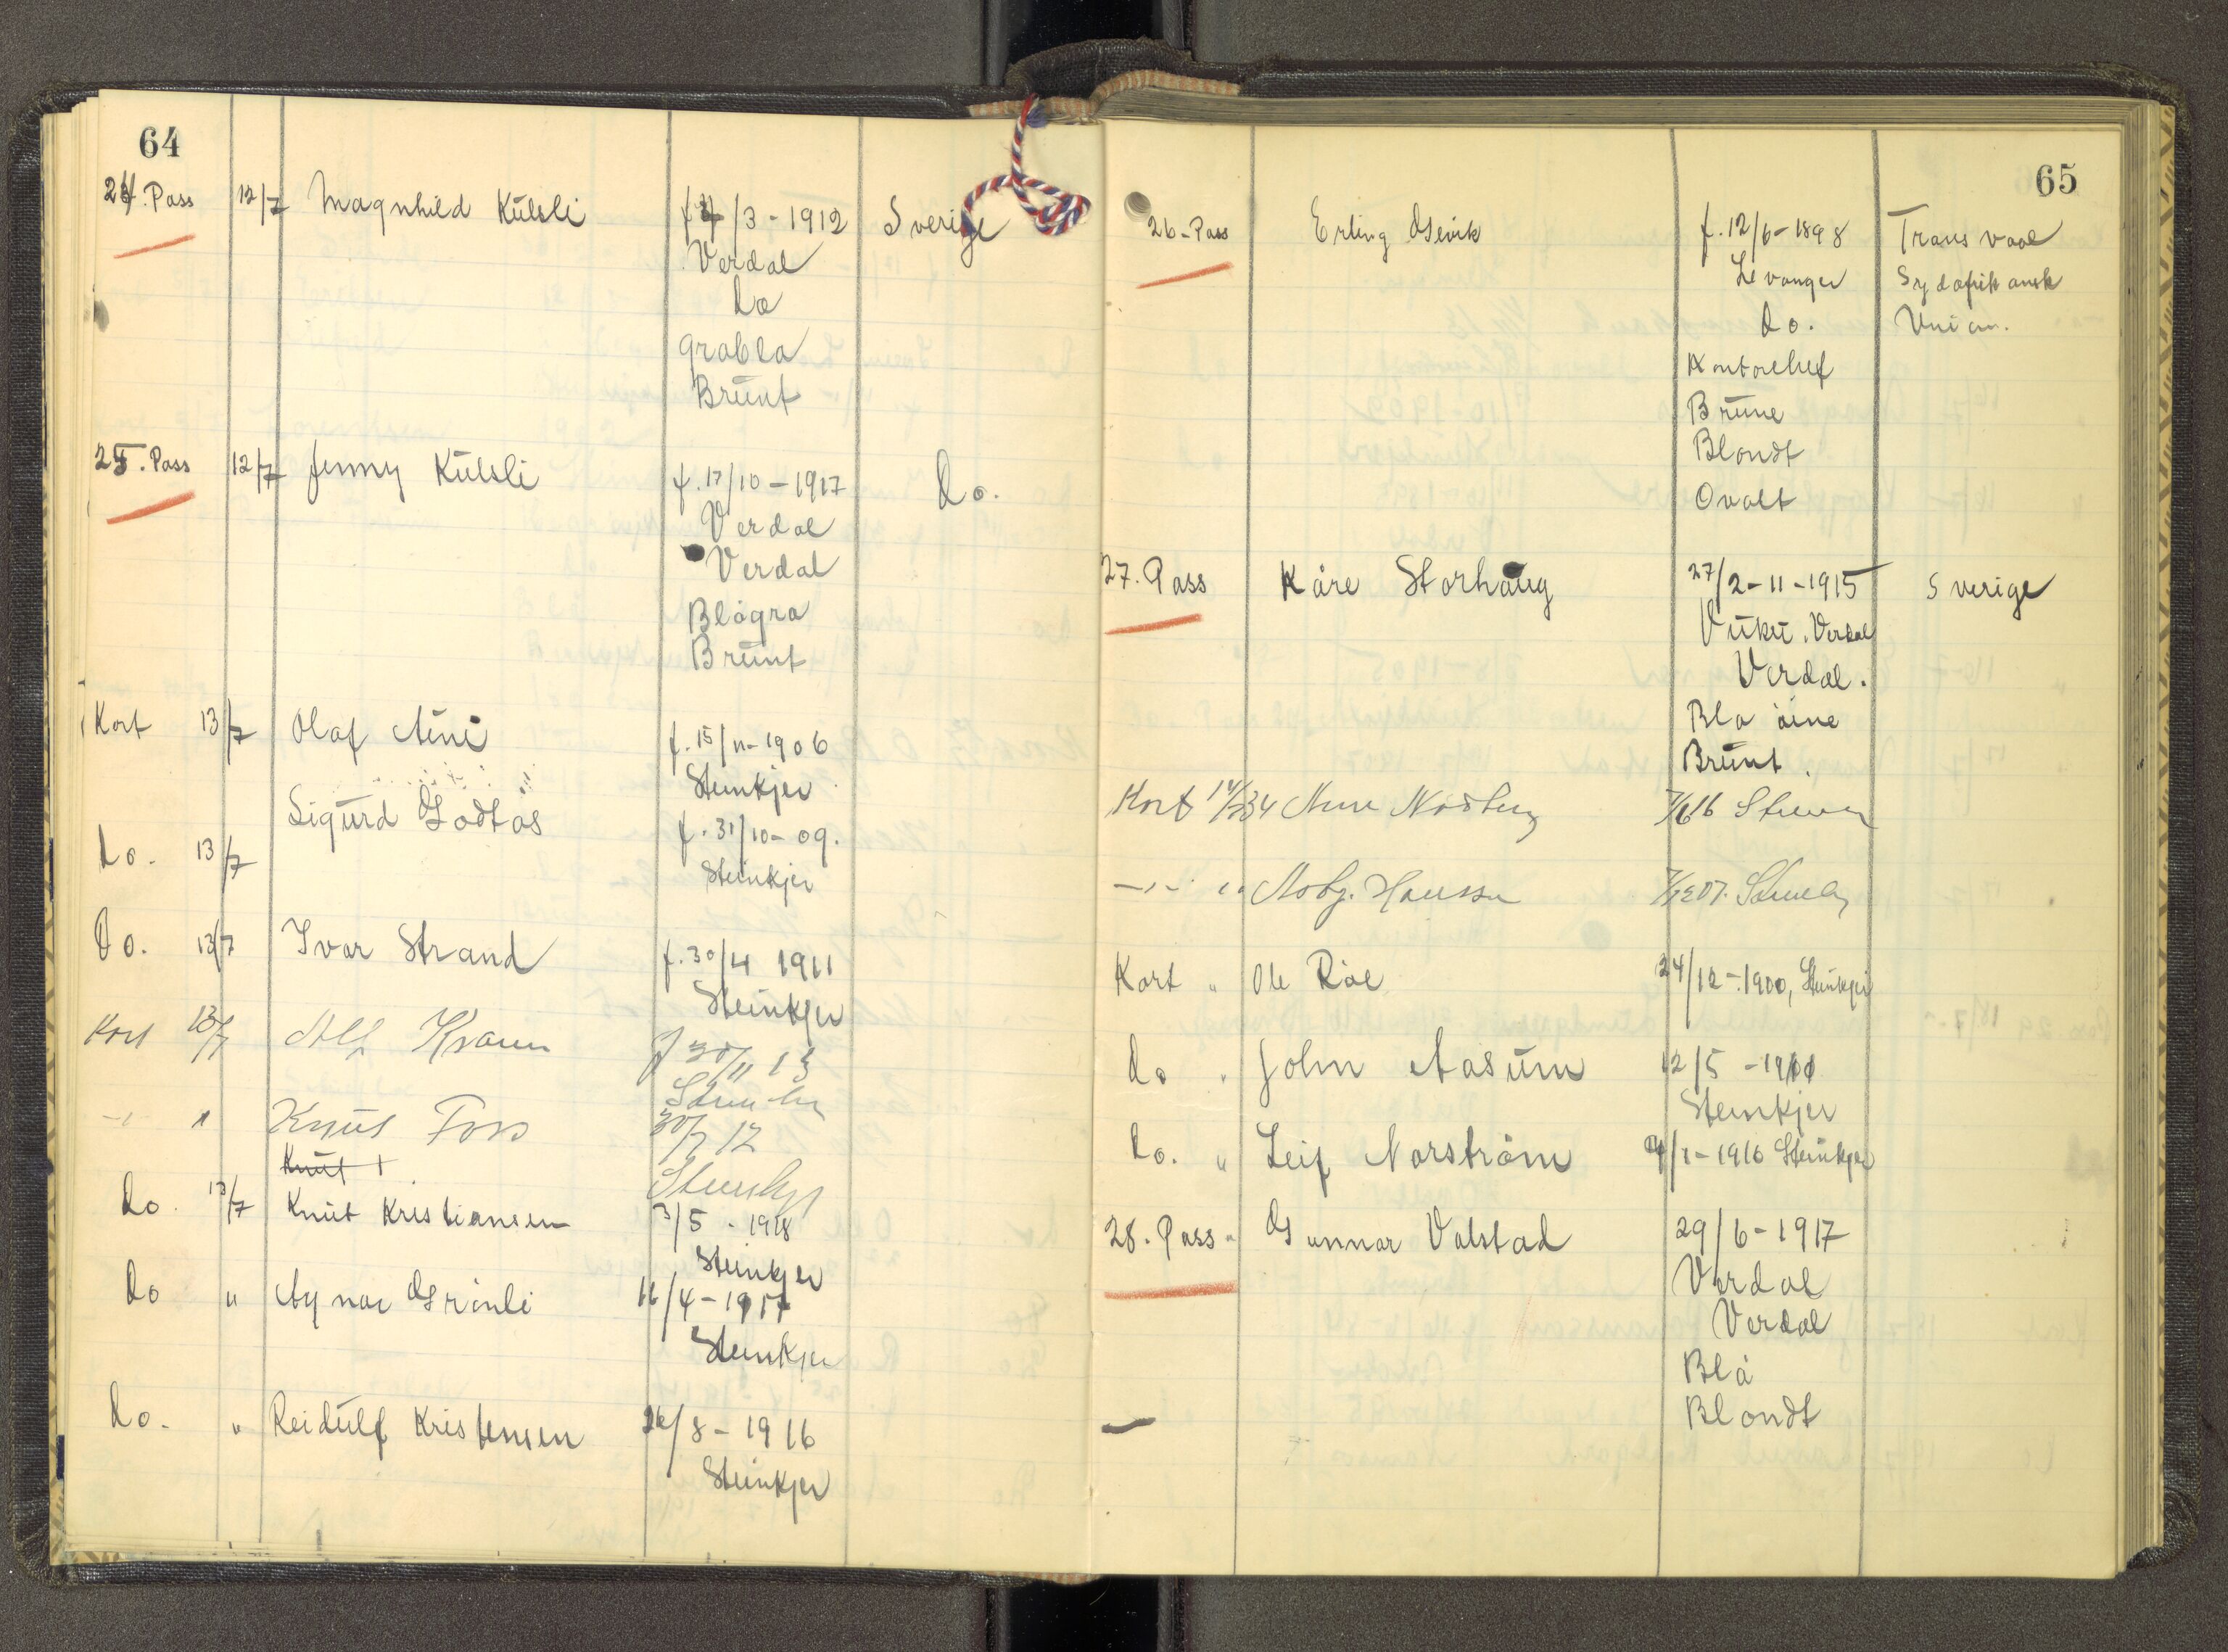 64
24. Pass 12/7 Magnhild Kulsli f 4/3-1912 Sverige
Verdal
do
gråblå
Brunt
25. Pass 12/7 Jenny Kulsli f. 17/10-1917 do.
Verdal
Verdal
Blågrå
Brunt
Kort 13/7 Olaf Aune f. 15/11-1906
Steinkjer
do. 13/7 Sigurd Godtås f. 31/10-09.
Steinkjer
Do. 13/7 Ivar Strand f. 30/4 1911
Steinkjer
Kort 13/7 Alf Kvam f 30/11 13
Knut Foss 30/7 12
Knut
do. 13/7 Knut Kristiansen 3/5 - 1918
Steinkjer
do " Aynar Grønli 16/4-1917
Steinkjer
do. " Reidulf Kristensen 26/8-1916
Steinkjer
65
26-Pass Erling Gjevik f. 12/6-1898 Transvaal
Levanger Sydafrikansk
do. Union.
Kontorchef
Brune
Blondt
Ovalt
27. Pass Kåre Storhaug 27/2-11-1915 Sverige
Vuku. Verdal
Verdal.
Blå øine
Brunt.
Kort 14/7 34 Arne Nordberg 7/6 16
Hansen
Kort " Ole Røe 24/12-1900, Steinkjer
do " John Aasum 12/5-1901
Steinkjer
do. " Leif Norstrøm 4/1-1916 Steinkjer
28. Pass " Gunnar Valstad 29/6-1917
Verdal
Verdal
Blå
Blondt